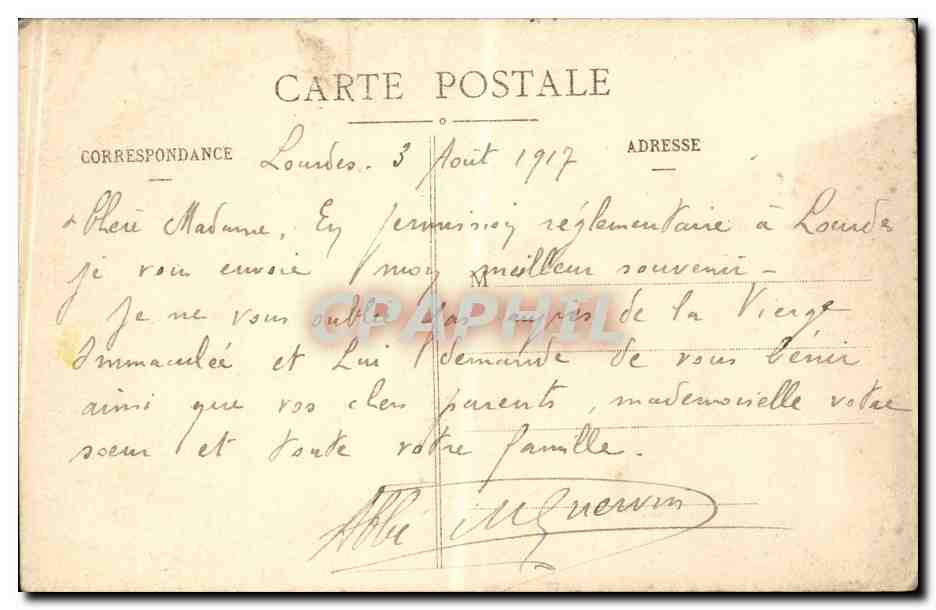 CARTE POSTALE
CORRESPONDANCE
ADRESSE
Lourdes. 3 Août 1917
Chère Madame, En permission réglementaire à Lourdes
je vous envoie mon meilleur souvenir -
M
Je ne vous oublie pas auprès de la Vierge
Immaculée et Lui demande de vous bénir
ainsi que vos chers parents, mademoiselle votre
sœur et toute votre famille.
Abbé
CPAPHIL